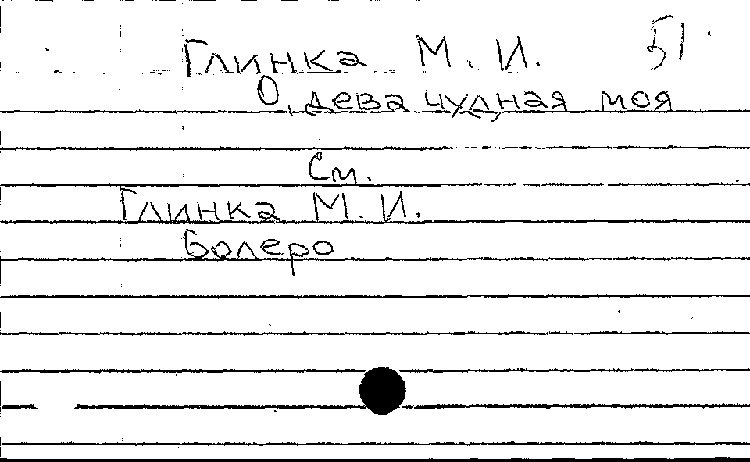 Глинка М. И. 51
О, дева чудная моя
См.
Глинка М. И.
Болеро